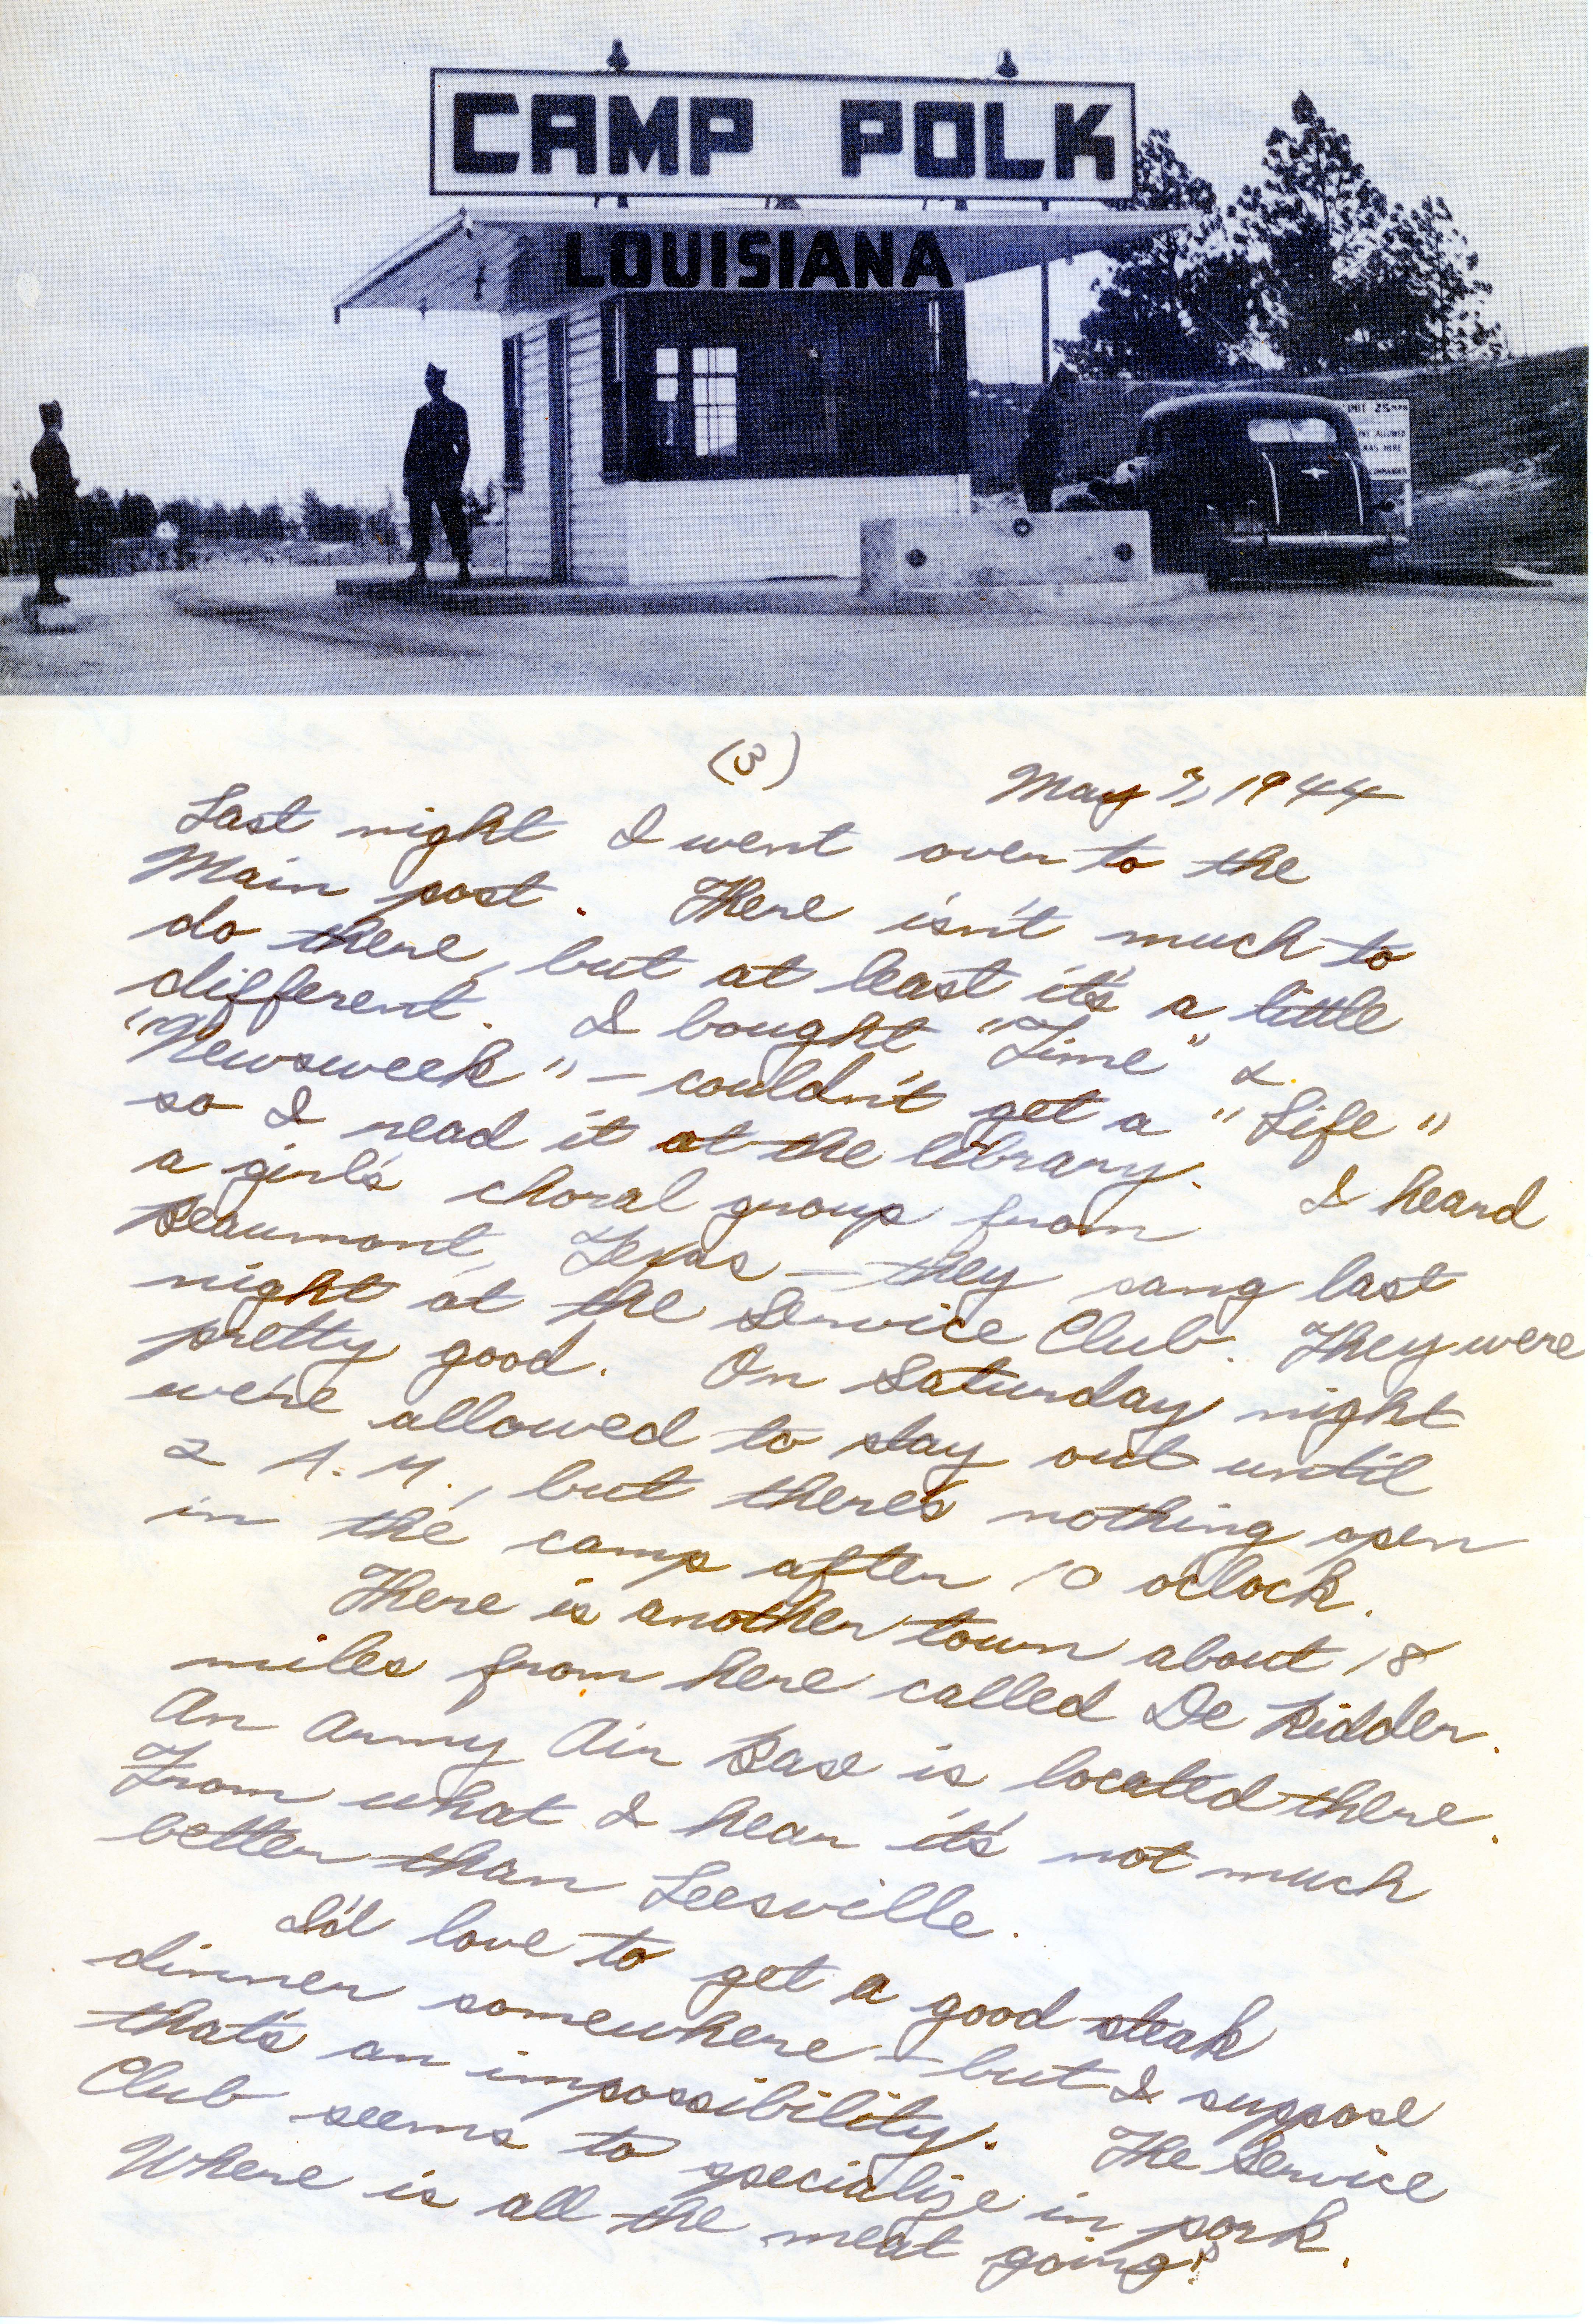 CAMP POLK
LOUISIANA
LIMIT 25 MPH
ALLOWED
HERE
COMMANDER
(3)
May 3, 1944
Last night I went over to the
Main post. There isn't much to
do there, but at least it's a little
different. I bought "Time" &
"Newsweek" – couldn't get a "Life"
so I read it at the library. I heard
a girl's choral group from
Beaumont, Texas – they sang last
night at the Service Club. They were
pretty good. On Saturday night
we're allowed to stay out until
2 A.M., but there's nothing open
in the camp after 10 o'clock.
There is another town about 18
miles from here called De Ridder.
An Army Air Base is located there.
From what I hear it's not much
better than Leesville.
I'd love to get a good steak
dinner somewhere – but I suppose
that's an impossibility. The Service
Club seems to specialize in pork.
Where is all the meat going?